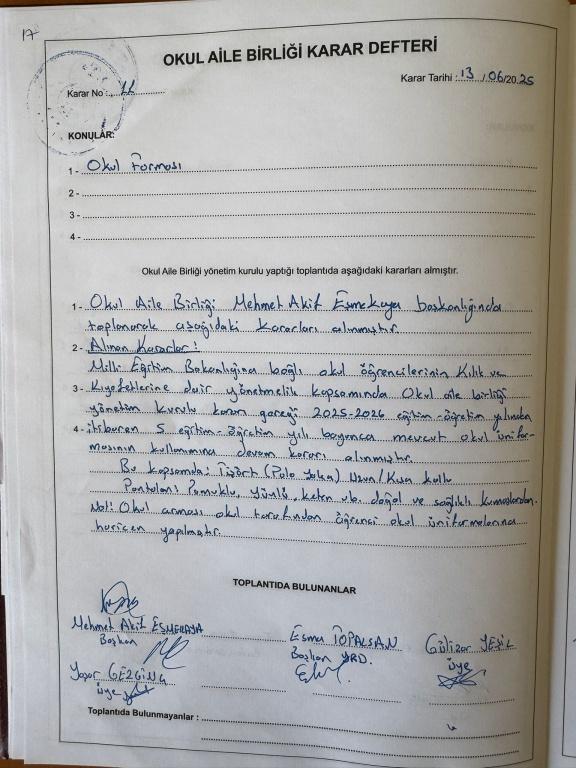 17
OKUL AİLE BİRLİĞİ KARAR DEFTERİ
Karar Tarihi : 13 / 06/2025
Karar No : 11
KONULAR:
1 - Okul Forması
2 -
3 -
4 -
Okul Aile Birliği yönetim kurulu yaptığı toplantıda aşağıdaki kararları almıştır.
1 - Okul Aile Birliği Mehmet Akif Eşmekaya başkanlığında
toplanarak aşağıdaki kararları alınmıştır.
2 - Alınan Kararlar:
Milli Eğitim Bakanlığına bağlı okul öğrencilerinin Kılık ve
3 - Kıyafetlerine dair yönetmelik kapsamında Okul aile birliği
yönetim kurulu kararı gereği 2025-2026 eğitim-öğretim yılından
4 - itibaren 5 eğitim-öğretim yılı boyunca mevcut okul ünifor-
masının kullanımına devam kararı alınmıştır.
Bu kapsamda: Tişört (Polo Yaka) Uzun/Kısa kollu
Pantolon: Pamuklu, yünlü, keten vb. doğal ve sağlıklı kumaşlardan.
Not: Okul arması okul tarafından öğrenci okul üniformalarına
haricen yapılmıştır.
TOPLANTIDA BULUNANLAR
Mehmet Akif EŞMEKAYA
Başkan
Esma TOPALSAN
Başkan YRD.
Gülizar YEŞİL
üye
Yaşar GEZGİNÇ
üye
Toplantıda Bulunmayanlar :